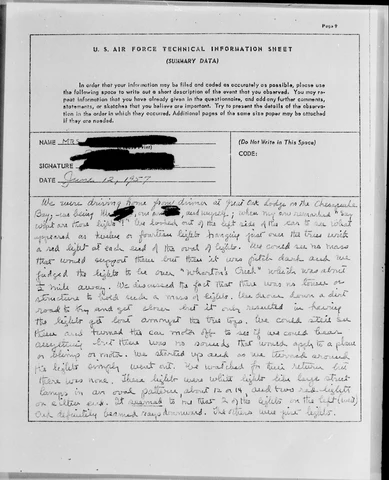 Page 9
U. S. AIR FORCE TECHNICAL INFORMATION SHEET
(SUMMARY DATA)
In order that your information may be filed and coded as accurately as possible, please use
the following space to write out a short description of the event that you observed. You may re-
peat information that you have already given in the questionnaire, and add any further comments,
statements, or sketches that you believe are important. Try to present the details of the observa-
tion in the order in which they occurred. Additional pages of the same size paper may be attached
if they are needed.
NAME Mrs.
(Do Not Write in This Space)
SIGNATURE
CODE:
DATE June 12, 1957
We were driving home from dinner at Great Oak Lodge on the Chesapeake
Bay, we being Mr. and myself; when my remarked "Say
what are those lights"! We looked out of the left side of the car to see what
appeared as twelve or fourteen lights hanging just over the trees with
a red light at each end of the oval of lights. We could see no mass
that would support them but then it was pitch dark and we
judged the lights to be over "Whorton's Creek" which was about
½ mile away. We discussed the fact that there was no tower or
structure to hold such a mass of lights. We drove down a dirt
road to try and get closer but it only resulted in having
the lights get lost amongst the tree tops. We could still see
them and turned the car motor off to see if we could hear
anything but there was no sounds that would apply to a plane
or blimp or motor. We started up and as we turned around
the lights simply went out. We watched for their return but
there was none. These lights were white lights like large street
lamps in an oval pattern, about 12 or 14, and two red lights
on either end. It seemed to me that 2 of the lights on the left (end)
did definitely beamed rays downward. The others were just lights.